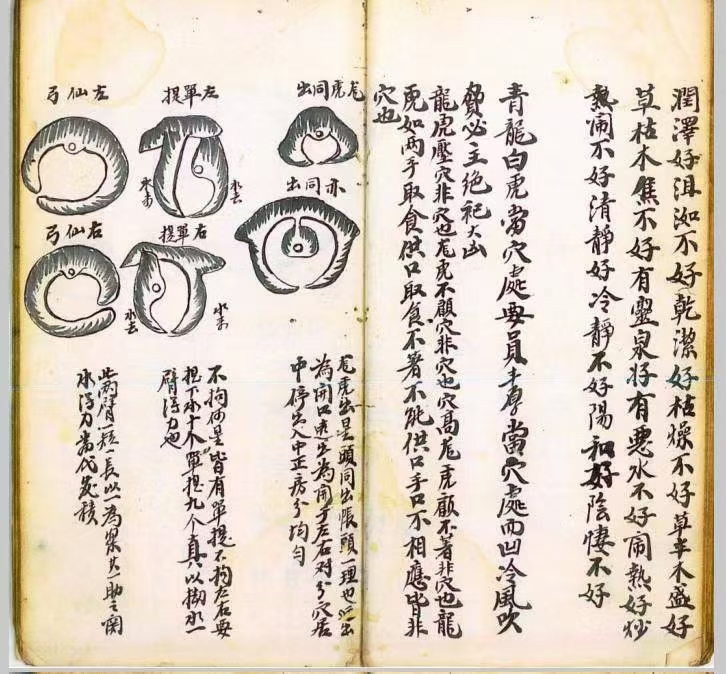 潤澤好沮洳不好乾潔好枯燥不好草木盛好
草枯木焦不好有靈泉好有惡水不好鬧熱好炒
熱鬧不好清靜好冷靜不好陽和好陰悽不好
青龍白虎當穴處要員峯當穴處而凹冷風吹
贅必主絶祀大凶
龍虎壓穴非穴也龙虎不顧穴非穴也穴高龙虎顧不著非穴也龍
虎如兩手取食供口取食不著不能供口手口不相應皆非
穴也
龙虎同出
亦同出
左單提
水去
右單提
水去
左仙弓
右仙弓
龙虎出是頭同出張頭一理也出
為開口透出為開手左右對分穴居
中停出入中正房分均勻
不拘何星皆有單提不拘左右要
提下水十个單提九个真以拗水一
臂得力也
此兩臂一短一長以一為案其一助之関
水得力當代發積